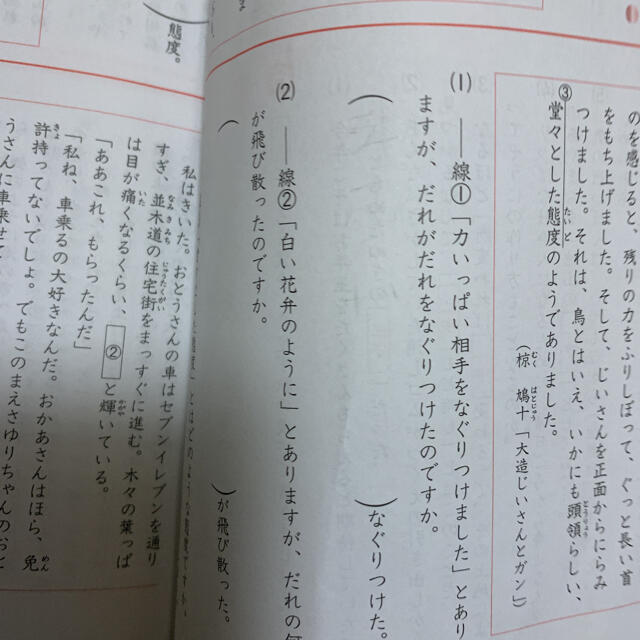 のを感じると、残りの力をふりしぼって、ぐっと長い首
をもち上げました。そして、じいさんを正面からにらみ
つけました。それは、鳥とはいえ、いかにも頭領らしい、
③堂々とした態度のようでありました。
(椋 鳩十「大造じいさんとガン」)
(1) ――線①「力いっぱい相手をなぐりつけました」とあり
ますが、だれがだれをなぐりつけたのですか。
( )なぐりつけた。
(2) ――線②「白い花弁のように」とありますが、だれの
が飛び散ったのですか。
( )が飛び散った。
態度。
私はきいた。おとうさんの車はセブンイレブンを通り
すぎ、並木道の住宅街をまっすぐに進む。木々の葉っぱ
は目が痛くなるくらい、②と輝いている。
「ああこれ、もらったんだ」
「私ね、車乗るの大好きなんだ。おかあさんはほら、免
許持ってないでしょ。でもこのまえさゆりちゃんのおと
うさんに車乗せて